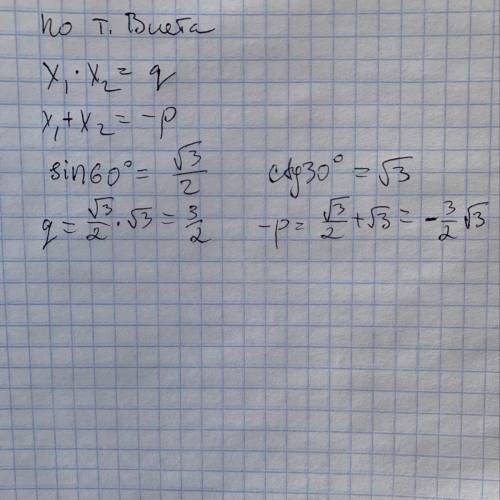 по т. Виета
x₁·x₂ = q
x₁+x₂ = -p
sin60° = √3/2 ctg30° = √3
q = √3/2 · √3 = 3/2 -p = √3/2 + √3 = -3/2 √3